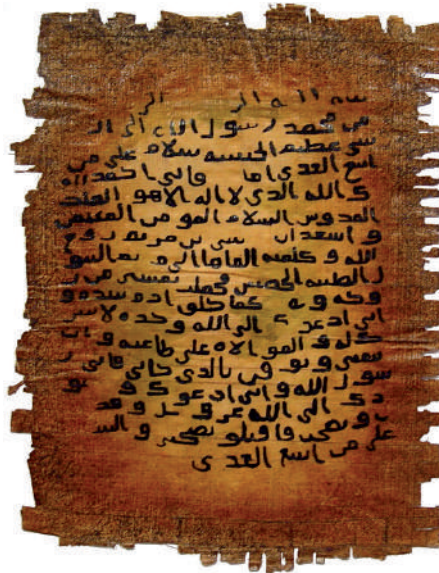 بسم الله الر الر
من محمد رسول الله الى ال
شي عظيم الحبشه سلام على من
اتبع الهدى اما فاني احمد
ك الله الذي لا اله الا هو الملك
القدوس السلام المومن المهيمن
و اشهد ان عيسى بن مريم روح
الله و كلمته القاها الى مريم البتو
ل الطيبه الحصينه فحملت بعيسى من
وحه و كما خلق ادم بيده و
اني ادعوك الى الله وحده لا شر
يك له و الموالاه على طاعته و ان
تتبعني و توقن بالذي جاني فاني ر
سول الله و اني ادعوك و
دك الى الله عز و جل و قد
و نصحت فاقبلو نصحي و الس
على من اتبع الهدى